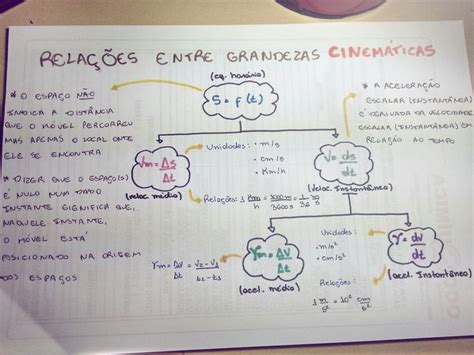 RELAÇÕES ENTRE GRANDEZAS CINEMÁTICAS
(eq. horária)
S = f(t)
* O ESPAÇO NÃO
INDICA A DISTÂNCIA
QUE O MÓVEL PERCORREU
MAS APENAS O LOCAL ONDE
ELE SE ENCONTRA
* DIZER QUE O ESPAÇO(S)
É NULO NUM DADO
INSTANTE SIGNIFICA QUE,
NAQUELE INSTANTE,
O MÓVEL ESTÁ
POSICIONADO NA ORIGEM
ESPAÇOS
* A ACELERAÇÃO
ESCALAR (INSTANTÂNEA)
É DERIVADA DA VELOCIDADE
ESCALAR (INSTANTÂNEA) EM
RELAÇÃO AO TEMPO
Vm = Δs/Δt
(veloc. média)
Unidades: • m/s
• cm/s
• Km/h
Relações: 1 Km/h = 1000m/3600s = 1/3,6 m/s
V = ds/dt
(veloc. Instantânea)
γm = ΔV/Δt = V2 - V1/t2 - t1
γm = ΔV/Δt
(acel. média)
Unidades:
• m/s²
• cm/s²
Relações:
1 m/s² = 10² cm/s²
γ = dv/dt
(acel. Instantânea)